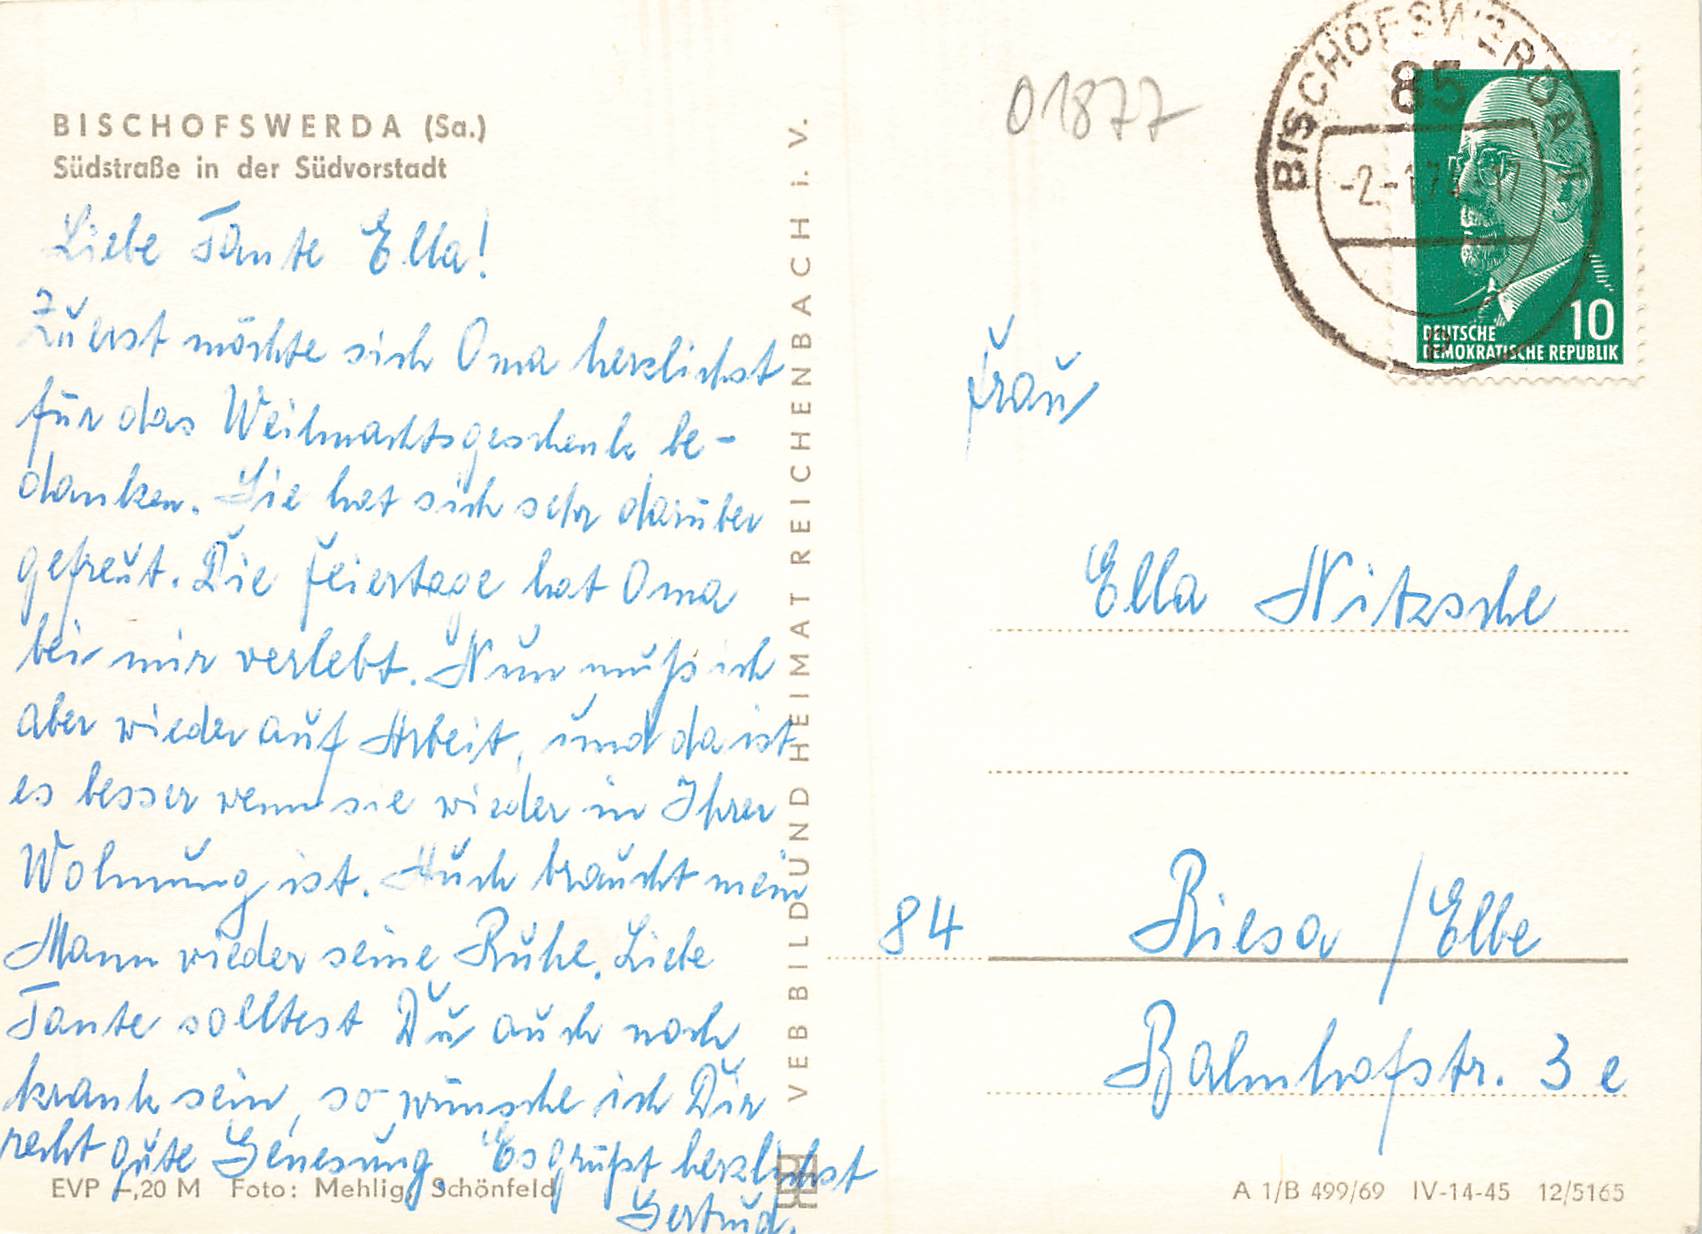 BISCHOFSWERDA (Sa.)
Südstraße in der Südvorstadt
Liebe Tante Ella!
Zuerst möchte sich Oma herzlichst
für das Weihnachtsgeschenk be-
danken. Sie hat sich sehr darüber
gefreut. Die Feiertage hat Oma
bei mir verlebt. Nun muß ich
aber wieder auf Arbeit, und da ist
es besser wenn sie wieder in Ihrer
Wohnung ist. Auch braucht mein
Mann wieder seine Ruhe. Liebe
Tante solltest Du auch noch
krank sein, so wünsche ich Dir
recht gute Genesung. Es grüßt herzlichst
Gertrud.
EVP –,20 M Foto: Mehlig, Schönfeld
VEB BILD UND HEIMAT REICHENBACH i. V.
01877
BISCHOFSWERDA
85
DEUTSCHE
DEMOKRATISCHE REPUBLIK
10
Frau
Ella Nitzsche
84 Riesa / Elbe
Bahnhofstr. 3 e
A 1/B 499/69 IV-14-45 12/5165